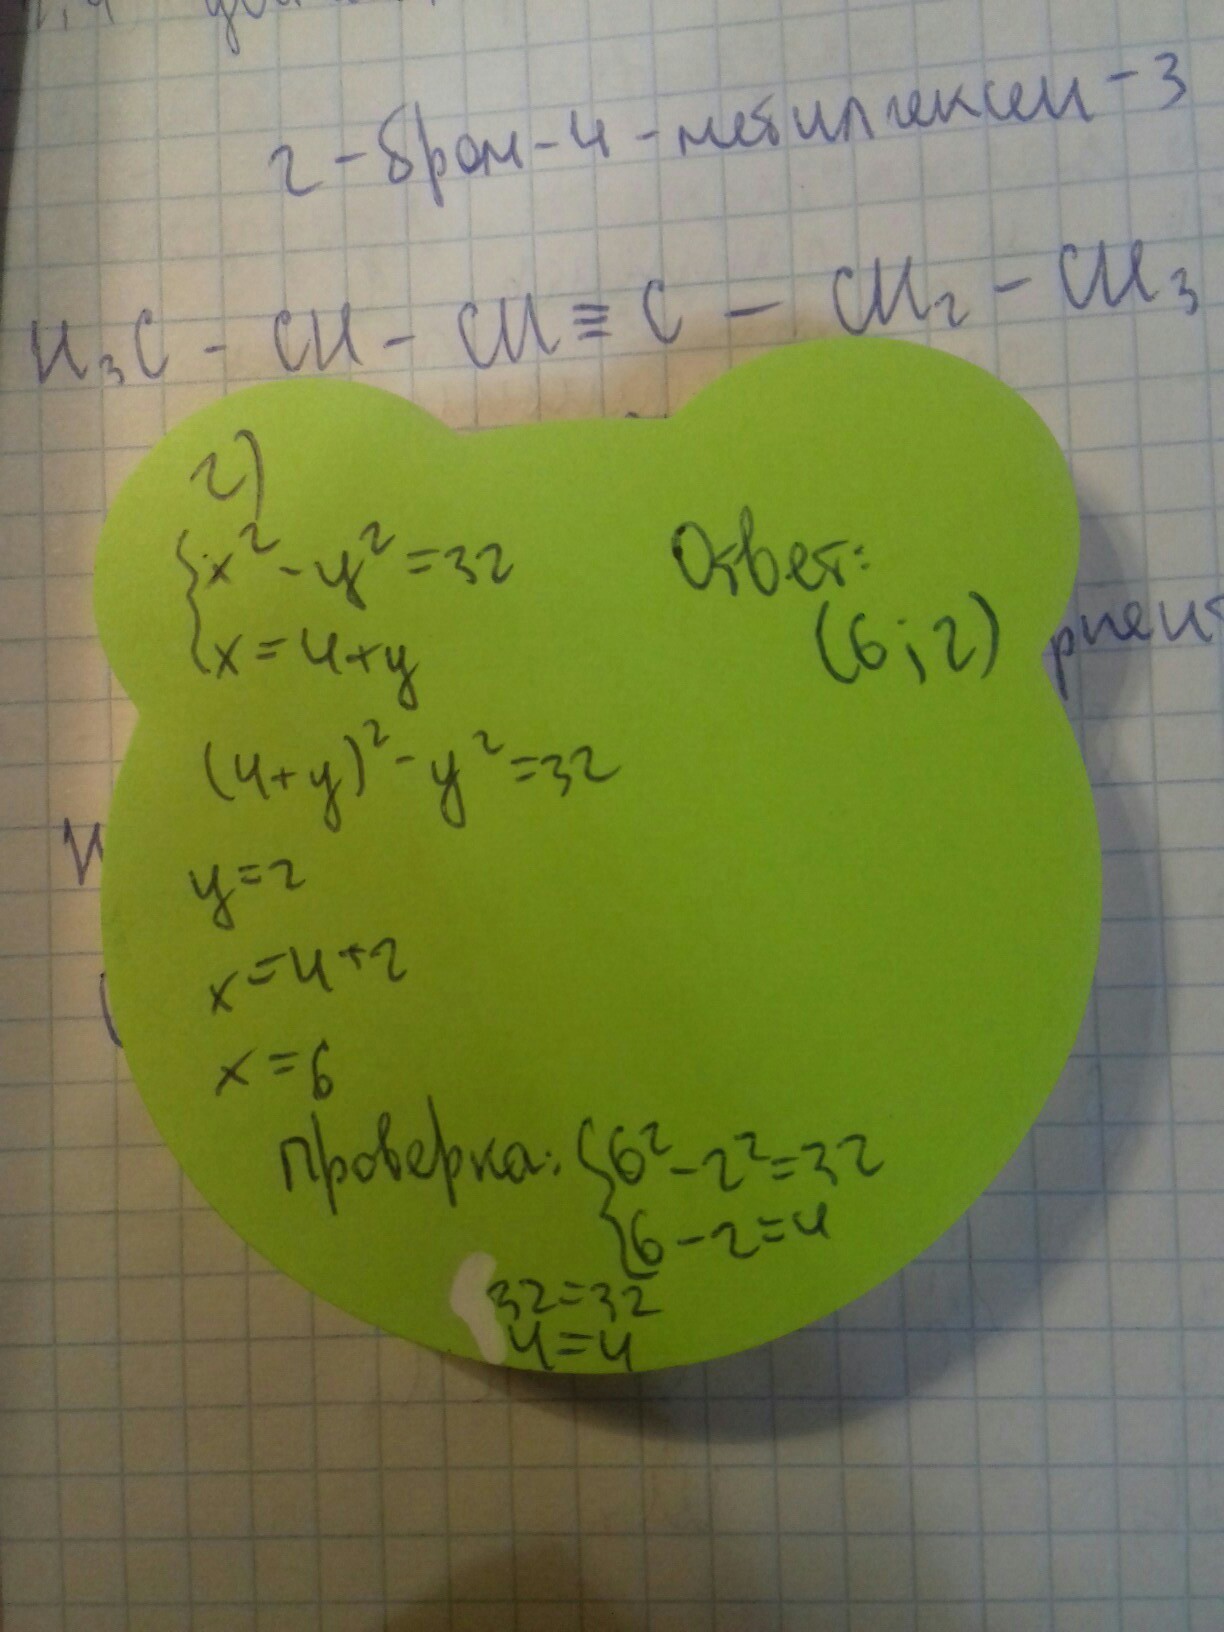 2-бром-4-метилгексен-3
H₃C - CH - CH ≡ C - CH₂ - CH₃
2)
{x² - y² = 32
{x = 4 + y
(4 + y)² - y² = 32
y = 2
x = 4 + 2
x = 6
Проверка: {6² - 2² = 32
{6 - 2 = 4
32 = 32
4 = 4
Ответ:
(6; 2)